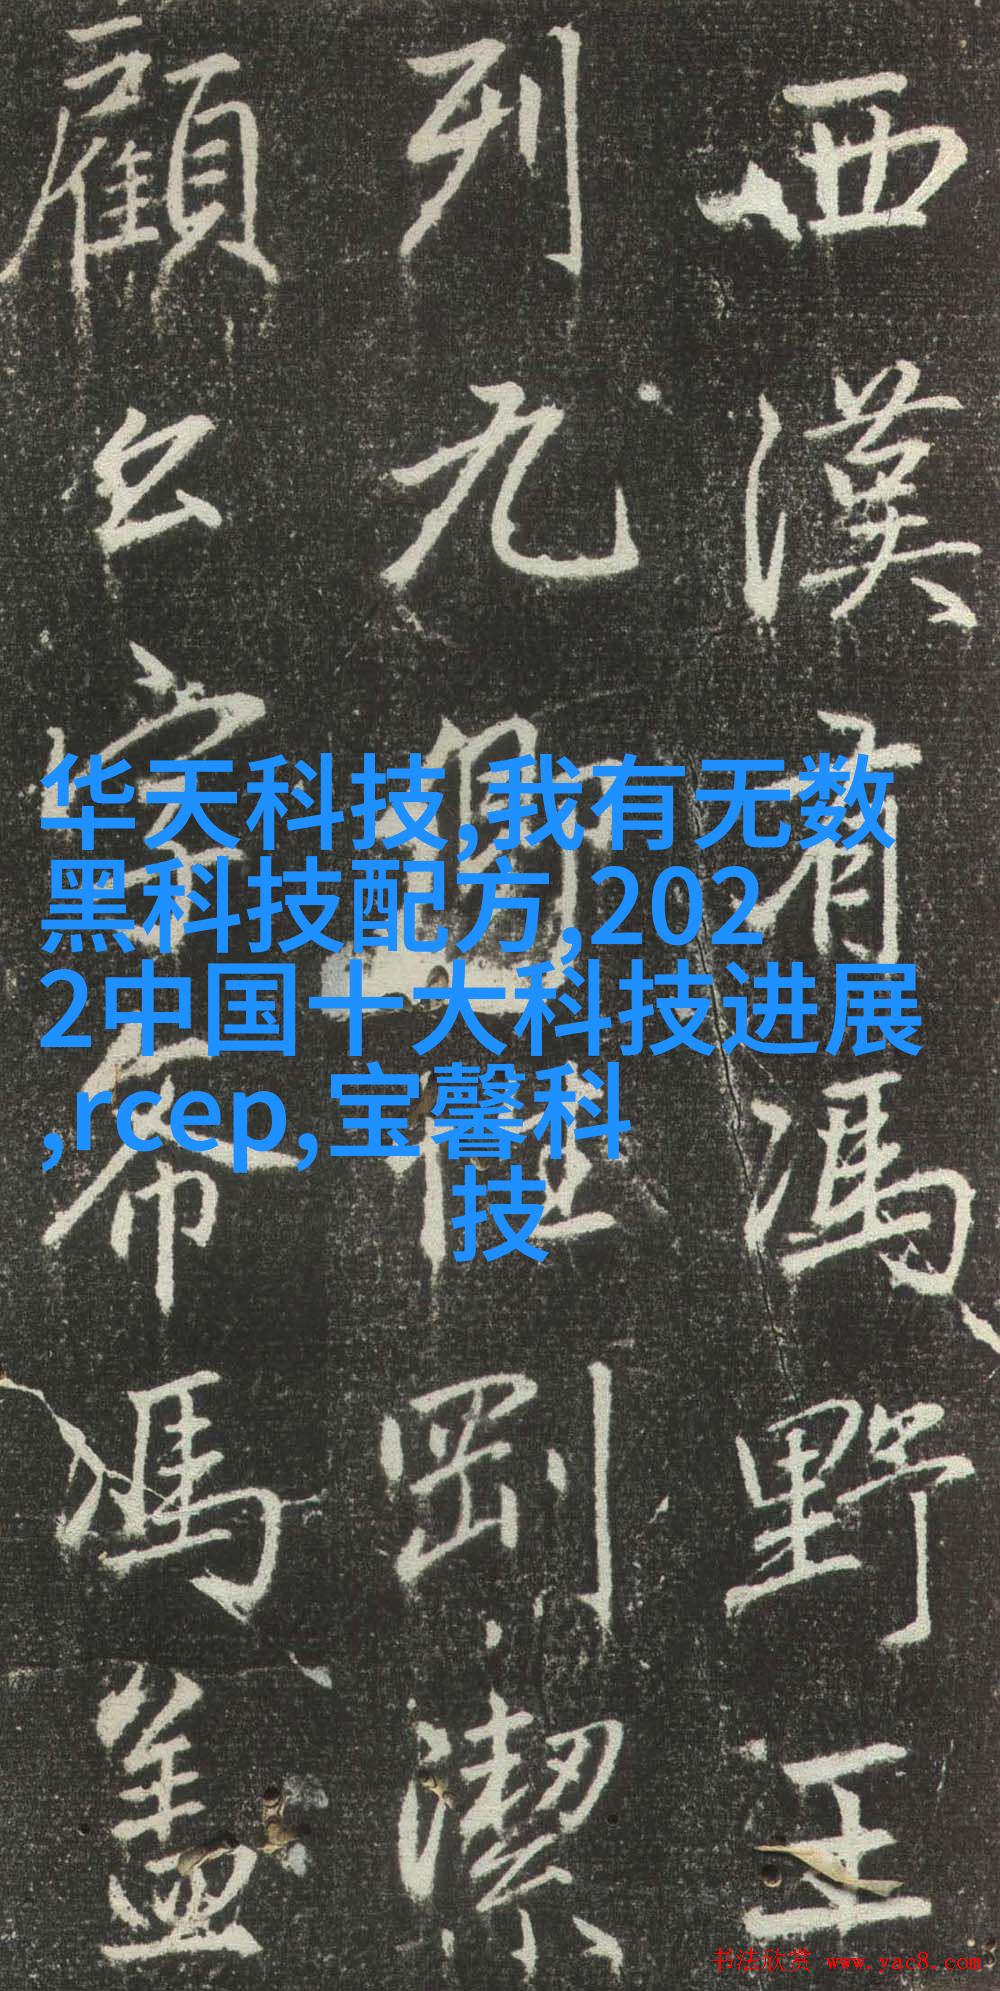 西漢有馮野王
列九卿
剛潔
顧
馮蓋
华天科技,我有无数
黑科技配方,202
2中国十大科技进展
,rcep,宝馨科
技
书法欣赏 www.yac8.com